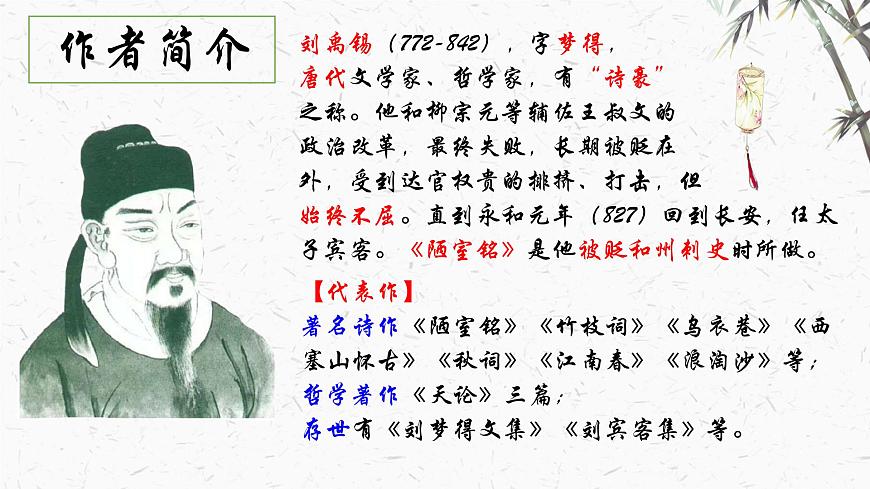 作者简介
刘禹锡（772-842），字梦得，
唐代文学家、哲学家，有“诗豪”
之称。他和柳宗元等辅佐王叔文的
政治改革，最终失败，长期被贬在
外，受到达官权贵的排挤、打击，但
始终不屈。直到永和元年（827）回到长安，任太
子宾客。《陋室铭》是他被贬和州刺史时所做。
【代表作】
著名诗作《陋室铭》《竹枝词》《乌衣巷》《西
塞山怀古》《秋词》《江南春》《浪淘沙》等；
哲学著作《天论》三篇；
存世有《刘梦得文集》《刘宾客集》等。